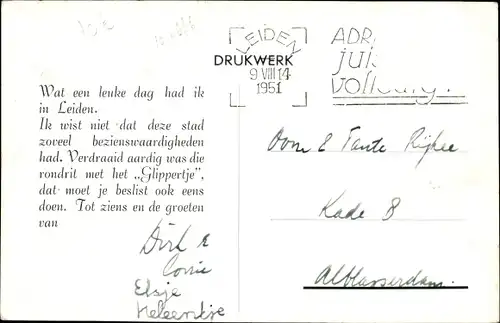 LEIDEN
DRUKWERK
9 VIII 14
1951
ADR
juis
volledig.
Wat een leuke dag had ik
in Leiden.
Ik wist niet dat deze stad
zoveel bezienswaardigheden
had. Verdraaid aardig was die
rondrit met het „Glippertje",
dat moet je beslist ook eens
doen. Tot ziens en de groeten
van
Dirk &
Corrie
Elsje
Heleentje
Oom & Tante
Kade 8
Alblasserdam.